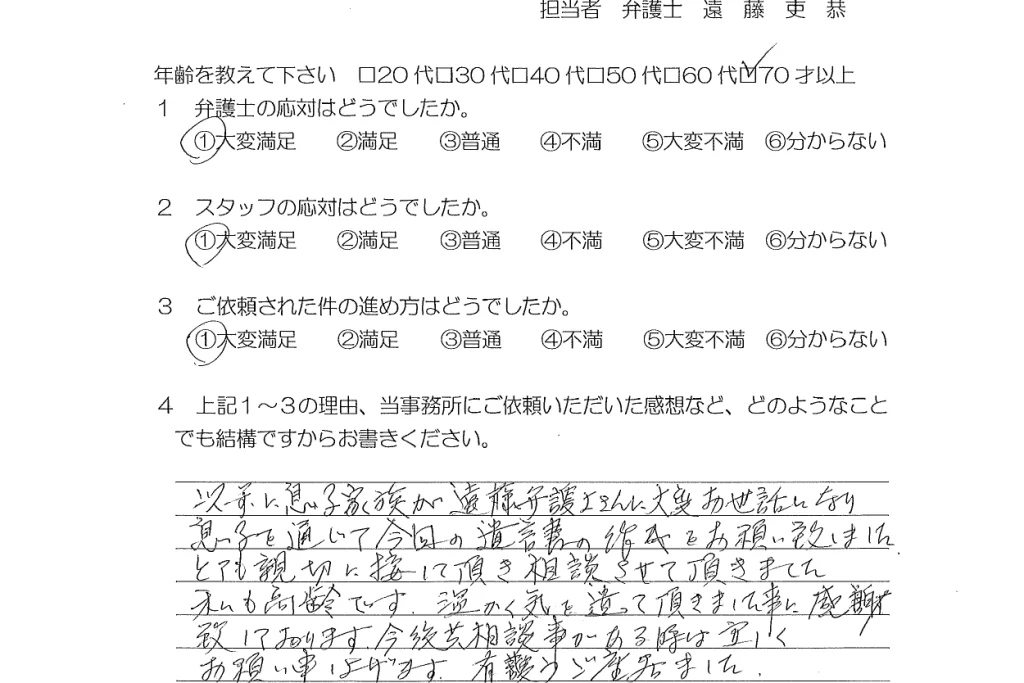 担当者　弁護士　遠　藤　吏　恭
年齢を教えて下さい　□20代□30代□40代□50代□60代☑70才以上
１　弁護士の応対はどうでしたか。
①大変満足　②満足　③普通　④不満　⑤大変不満　⑥分からない
２　スタッフの応対はどうでしたか。
①大変満足　②満足　③普通　④不満　⑤大変不満　⑥分からない
３　ご依頼された件の進め方はどうでしたか。
①大変満足　②満足　③普通　④不満　⑤大変不満　⑥分からない
４　上記１～３の理由、当事務所にご依頼いただいた感想など、どのようなこと
でも結構ですからお書きください。
以前に息子家族が遠藤弁護士さんに大変お世話になり
息子を通じて今回の遺言書の作成をお願い致しました
とても親切に接して頂き相談させて頂きました
私も高齢です．温かく気を遣って頂きました事に感謝
致しております．今後共相談事がある時は宜しく
お願い申し上げます．有難うご座居ました．